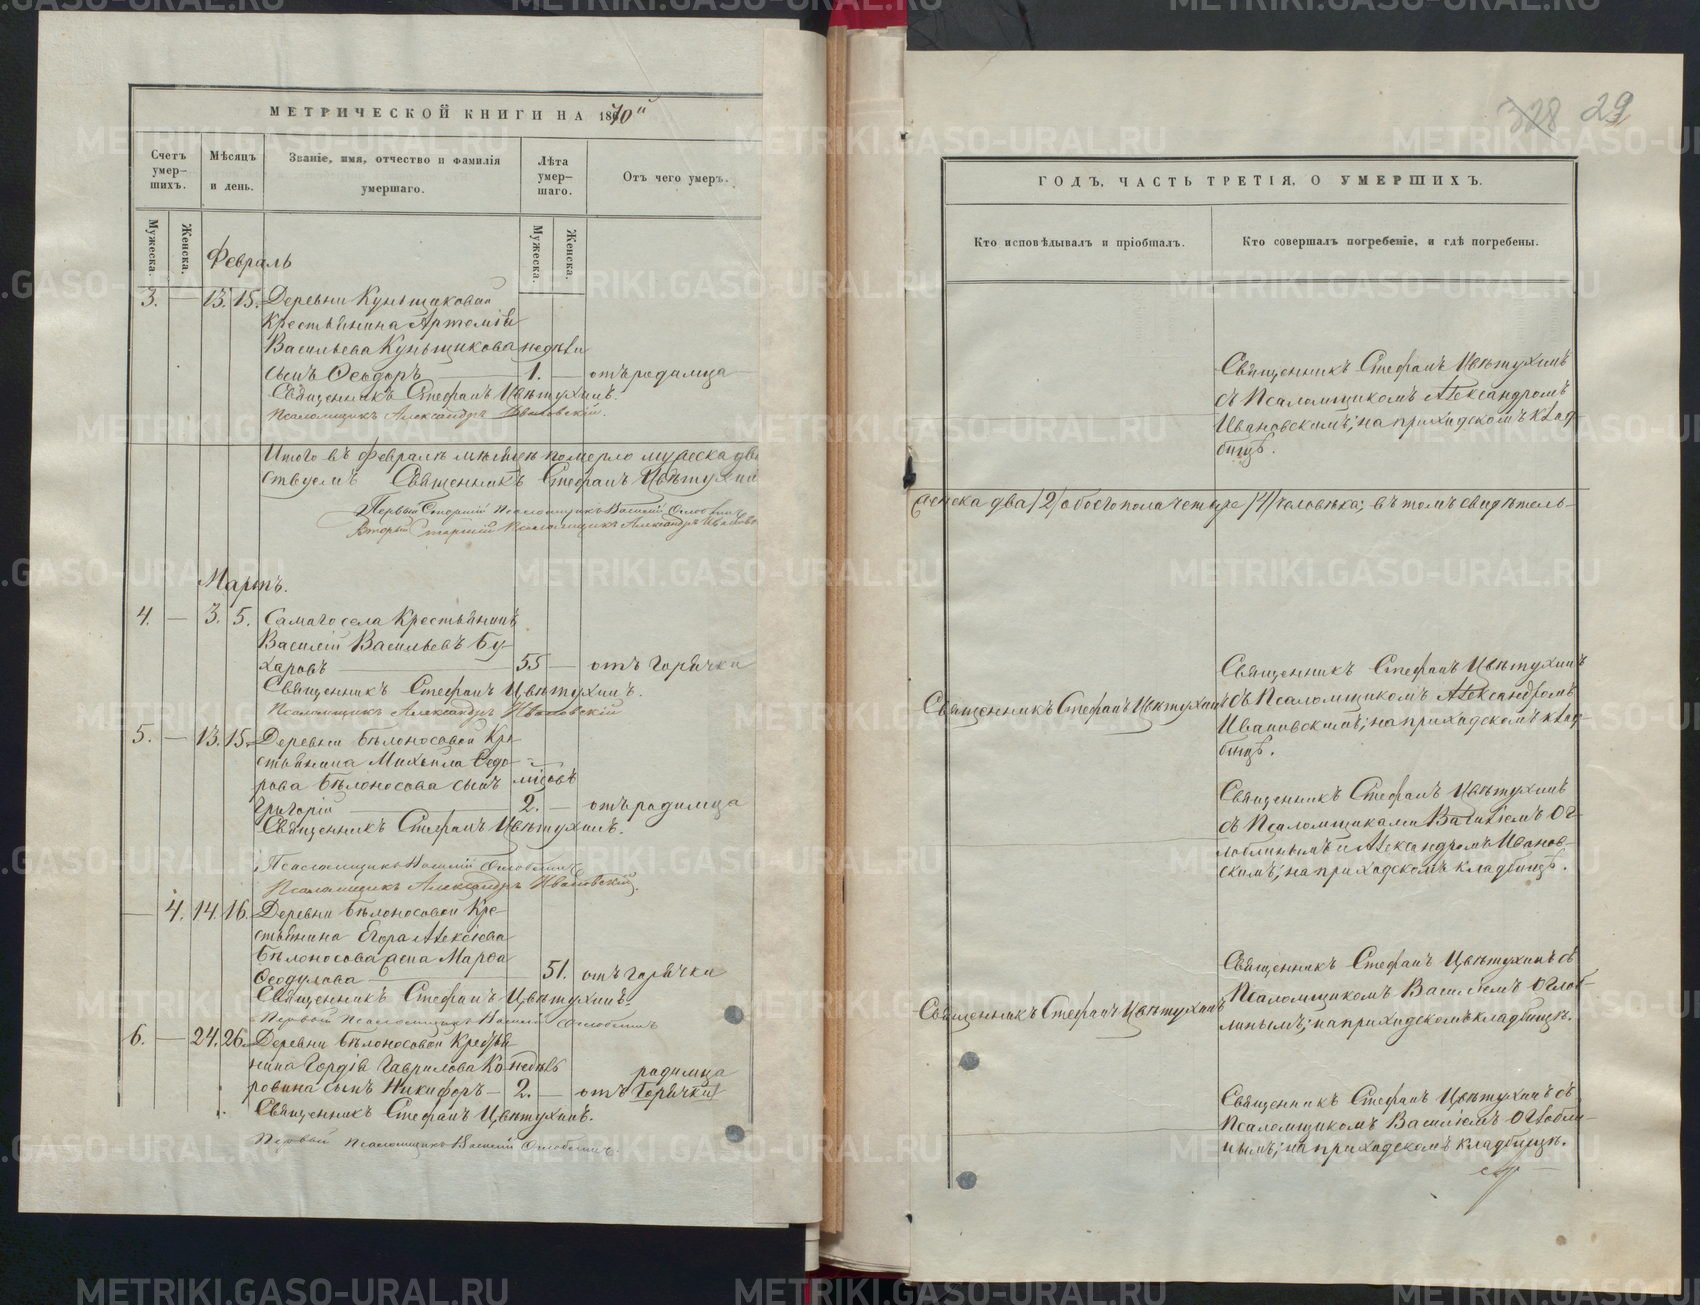 МЕТРИЧЕСКОЙ КНИГИ НА 1870й
Счетъ умер-шихъ.
Мѣсяцъ и день.
Званіе, имя, отчество и фамилія умершаго.
Лѣта умер-шаго.
Отъ чего умеръ.
Мужеска.
Женска.
Мужеска.
Женска.
Февраль
3. — 13. 15. Деревни Куньщиковой
крестьянина Артемія
Васильева Куньщикова недѣли
сынъ Ѳеодоръ — 1. — отъ родимца
Священникъ Стефанъ Цвѣтухинъ.
Псаломщикъ Александръ Ивановскій.
Итого въ февралѣ мѣсяцѣ померло мужеска два
ствуемъ Священникъ Стефанъ Цвѣтухинъ
Первый Старшій Псаломщикъ Василій Оглоблинъ
Вторый старшій Псаломщикъ Александръ Ивановс
Мартъ.
4. — 3. 5. Самаго села Крестьянинъ
Василій Васильевъ Бу-
харовъ — 55 — отъ горячки
Священникъ Стефанъ Цвѣтухинъ.
Псаломщикъ Александръ Ивановскій
5. — 13. 15. Деревни Бѣлоносовой Кре
стьянина Михаила Ѳедо-
рова Бѣлоносова сынъ мѣсовъ
Григорій — 2. — отъ родимца
Священникъ Стефанъ Цвѣтухинъ.
Псаломщикъ Василій Оглоблинъ
Псаломщикъ Александръ Ивановскій.
— 4. 14. 16. Деревни Бѣлоносовой Кре-
стьянина Егора Алексѣева
Бѣлоносова жена Марѳа
Ѳеодулова — 51. отъ горячки
Священникъ Стефанъ Цвѣтухинъ.
Первый Псаломщикъ Василій Оглоблинъ
6. — 24. 26. Деревни Бѣлоносовой Крестья
нина Гордія Гаврилова Ко недѣль родимца
ровина сынъ Никифоръ — 2. — отъ Горячки
Священникъ Стефанъ Цвѣтухинъ.
Первый Псаломщикъ Василій Оглоблинъ.
328 29
ГОДЪ, ЧАСТЬ ТРЕТІЯ, О УМЕРШИХЪ.
Кто исповѣдывалъ и пріобщалъ.
Кто совершалъ погребеніе, и гдѣ погребены.
Священникъ Стефанъ Цвѣтухинъ
съ Псаломщикомъ Александромъ
Ивановскимъ; на приходскомъ клад-
бищѣ.
женска два /2/ обоего пола четыре /4/ человѣка; въ томъ свидѣтель-
Священникъ Стефанъ Цвѣтухинъ
Священникъ Стефанъ Цвѣтухинъ
съ Псаломщикомъ Александромъ
Ивановскимъ; на приходскомъ клад-
бищѣ.
Священникъ Стефанъ Цвѣтухинъ
съ Псаломщиками Василіемъ Ог-
лоблинымъ и Александромъ Иванов-
скимъ; на приходскомъ кладбищѣ.
Священникъ Стефанъ Цвѣтухинъ
Священникъ Стефанъ Цвѣтухинъ съ
Псаломщикомъ Василіемъ Оглоб-
линымъ; на приходскомъ кладбищѣ.
Священникъ Стефанъ Цвѣтухинъ съ
Псаломщикомъ Василіемъ Оглобли-
нымъ; на приходскомъ кладбищѣ.
METRIKI.GASO-URAL.RU